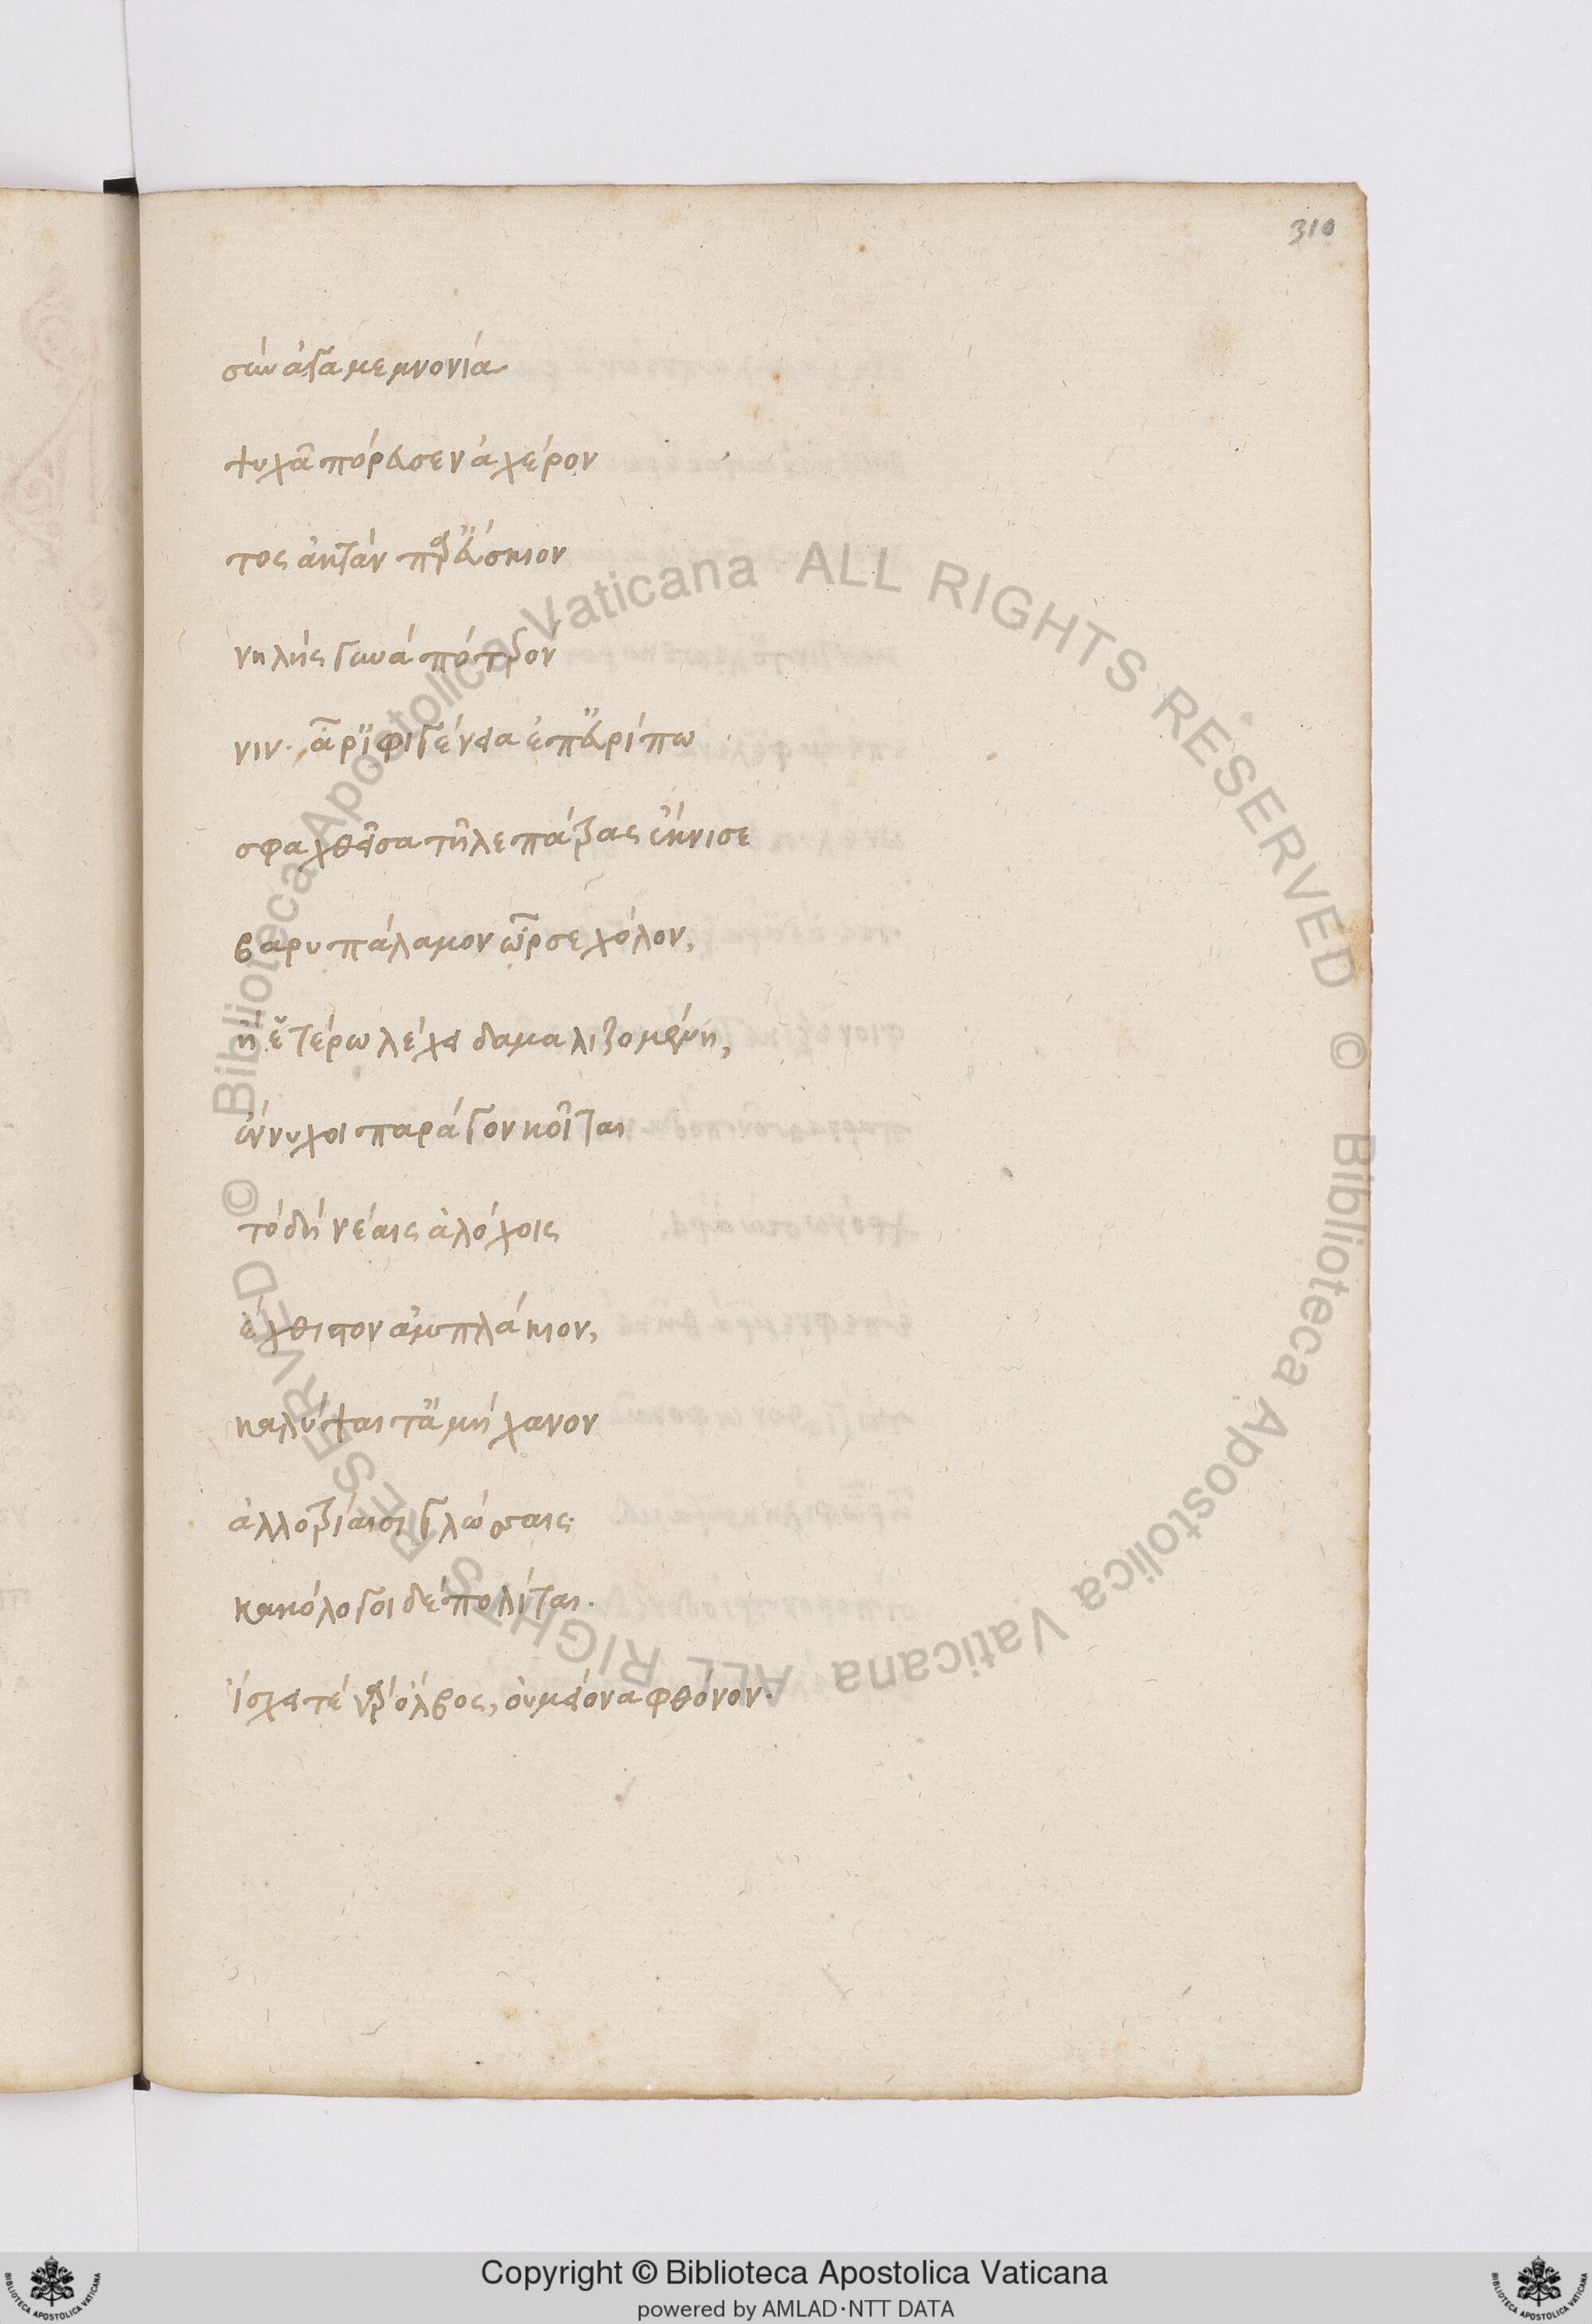 310
σὺν ἀγαμεμνονία
ψυχᾶ πόρευσεν ἀχέρον
τος ἀκτὰν παρ' εὔσκιον
νηλὴς γυνά πότερον
νιν· ἆρ' ἰφιγένεια ἐπ' εὐρίπω
σφαχθεῖσα τῆλε πάτρας ἔκνισε
βαρυπάλαμον ὦρσε χόλον,
ἢ ἑτέρω λέχει δαμαλιζομένη,
ἔννυχοι παράγον κοῖται
τὸ δὴ νέαις ἀλόχοις
ἔχθιστον ἀμπλάκιον,
καλύψαι τ' ἀμήχανον
ἀλλοτρίαισι γλώσσαις·
κακόλογοι δὲ πολίται.
ἴσχει τέ γὰρ ὄλβος, οὐ μείονα φθόνον.
© Biblioteca Apostolica Vaticana ALL RIGHTS RESERVED © Biblioteca Apostolica Vaticana ALL RIGHTS RESERVED
Copyright © Biblioteca Apostolica Vaticana
powered by AMLAD·NTT DATA
BIBLIOTECA APOSTOLICA VATICANA
BIBLIOTECA APOSTOLICA VATICANA